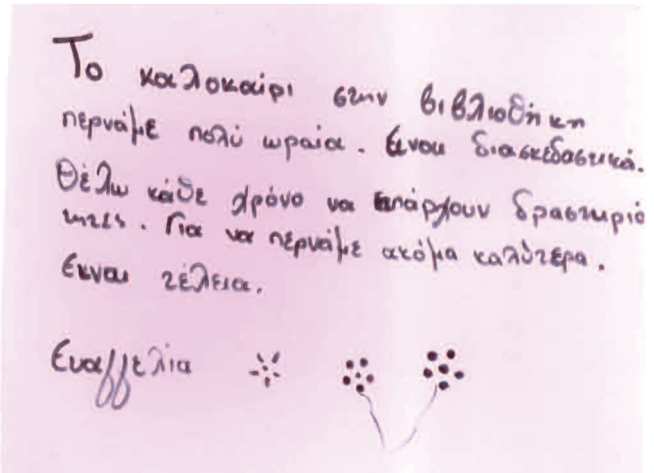 Το καλοκαίρι στην βιβλιοθήκη
περνάμε πολύ ωραία. Είναι διασκεδαστικά.
Θέλω κάθε χρόνο να υπάρχουν δραστηριό
τητες. Για να περνάμε ακόμα καλύτερα.
Είναι τέλεια.
Ευαγγελία